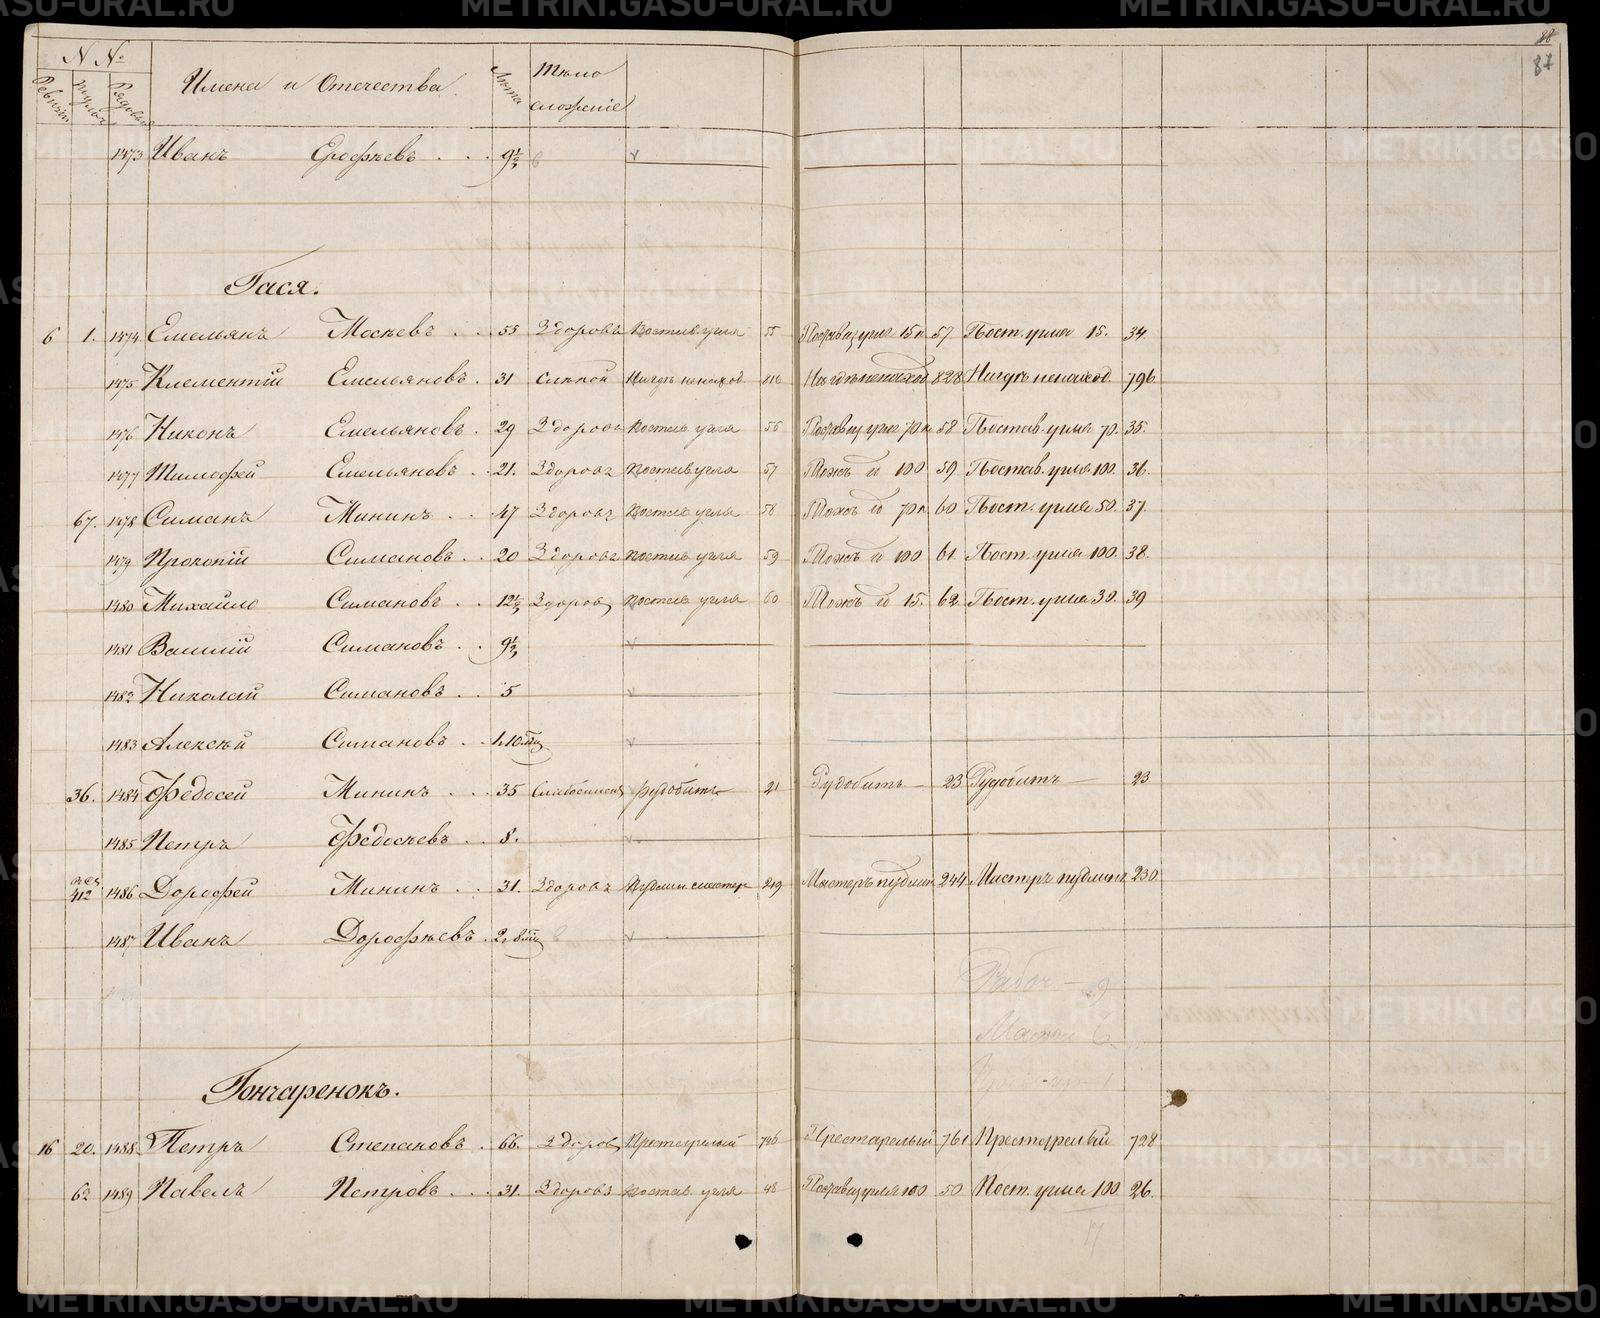 N № Имена и Отечества Лета Тело сложенiе
Ревизск. Рядовые
88
87
1473 Иванъ Ерофѣевъ . . . 9½
Гася.
6 1. 1474 Емельянъ Мосѣевъ . . . 55 Здоровъ Постав. угля 55 Поставщ. угля 15 к 57. Пост. угля 15. 34.
1475 Клементiй Емельяновъ . 31 слѣпой Нигдѣ не наход. 816 Нигдѣ не наход. 828 Нигдѣ не наход. 796
1476 Никонъ Емельяновъ . 29 Здоровъ Постав угля 56 Поставщ. угля 70 к 58 Постав. угля 70. 35.
1477 Тимофей Емельяновъ . . 21. Здоровъ Постав угля 57 Тожъ 100 59. Постав. угля 100. 36.
67. 1478 Симанъ Мининъ . . . 47 Здоровъ Постав угля 58 Тожъ 70 к. 60 Пост. угля 50. 37.
1479 Прокопiй Симановъ . . 20 Здоровъ Постав угля 59 Тожъ 100 61. Пост. угля 100. 38.
1480 Михайло Симановъ . . 12½ Здоровъ Постав угля 60 Тожъ 15. 62. Пост. угля 30. 39
1481 Василiй Симановъ . . 9½
1482 Николай Симановъ . . 5
1483 Алексѣй Симановъ . . 1. 10 мц
36. 1484 Федосей Мининъ . . . 35 Слабосилен Рудобитъ 21 Рудобитъ — 23 Рудобитъ — 23
1485 Петръ Федосѣевъ . . 8.
412 1486 Дорофей Мининъ . . 31. Здоровъ Пудлин. мастер 219 Мастеръ пудлин 244 Мастеръ пудлинг. 230
1487 Иванъ Дорофѣевъ . 2. 8 мц
Гончаренокъ.
16 20. 1488 Петръ Степановъ . 66. Здоров Престарелый 746 Престарелый 761 Престарелый 728
62 1489 Павелъ Петровъ . . . 31. Здоровъ Постав. угля 48 Поставщ угля 100 50 Пост. угля 100 26.
17